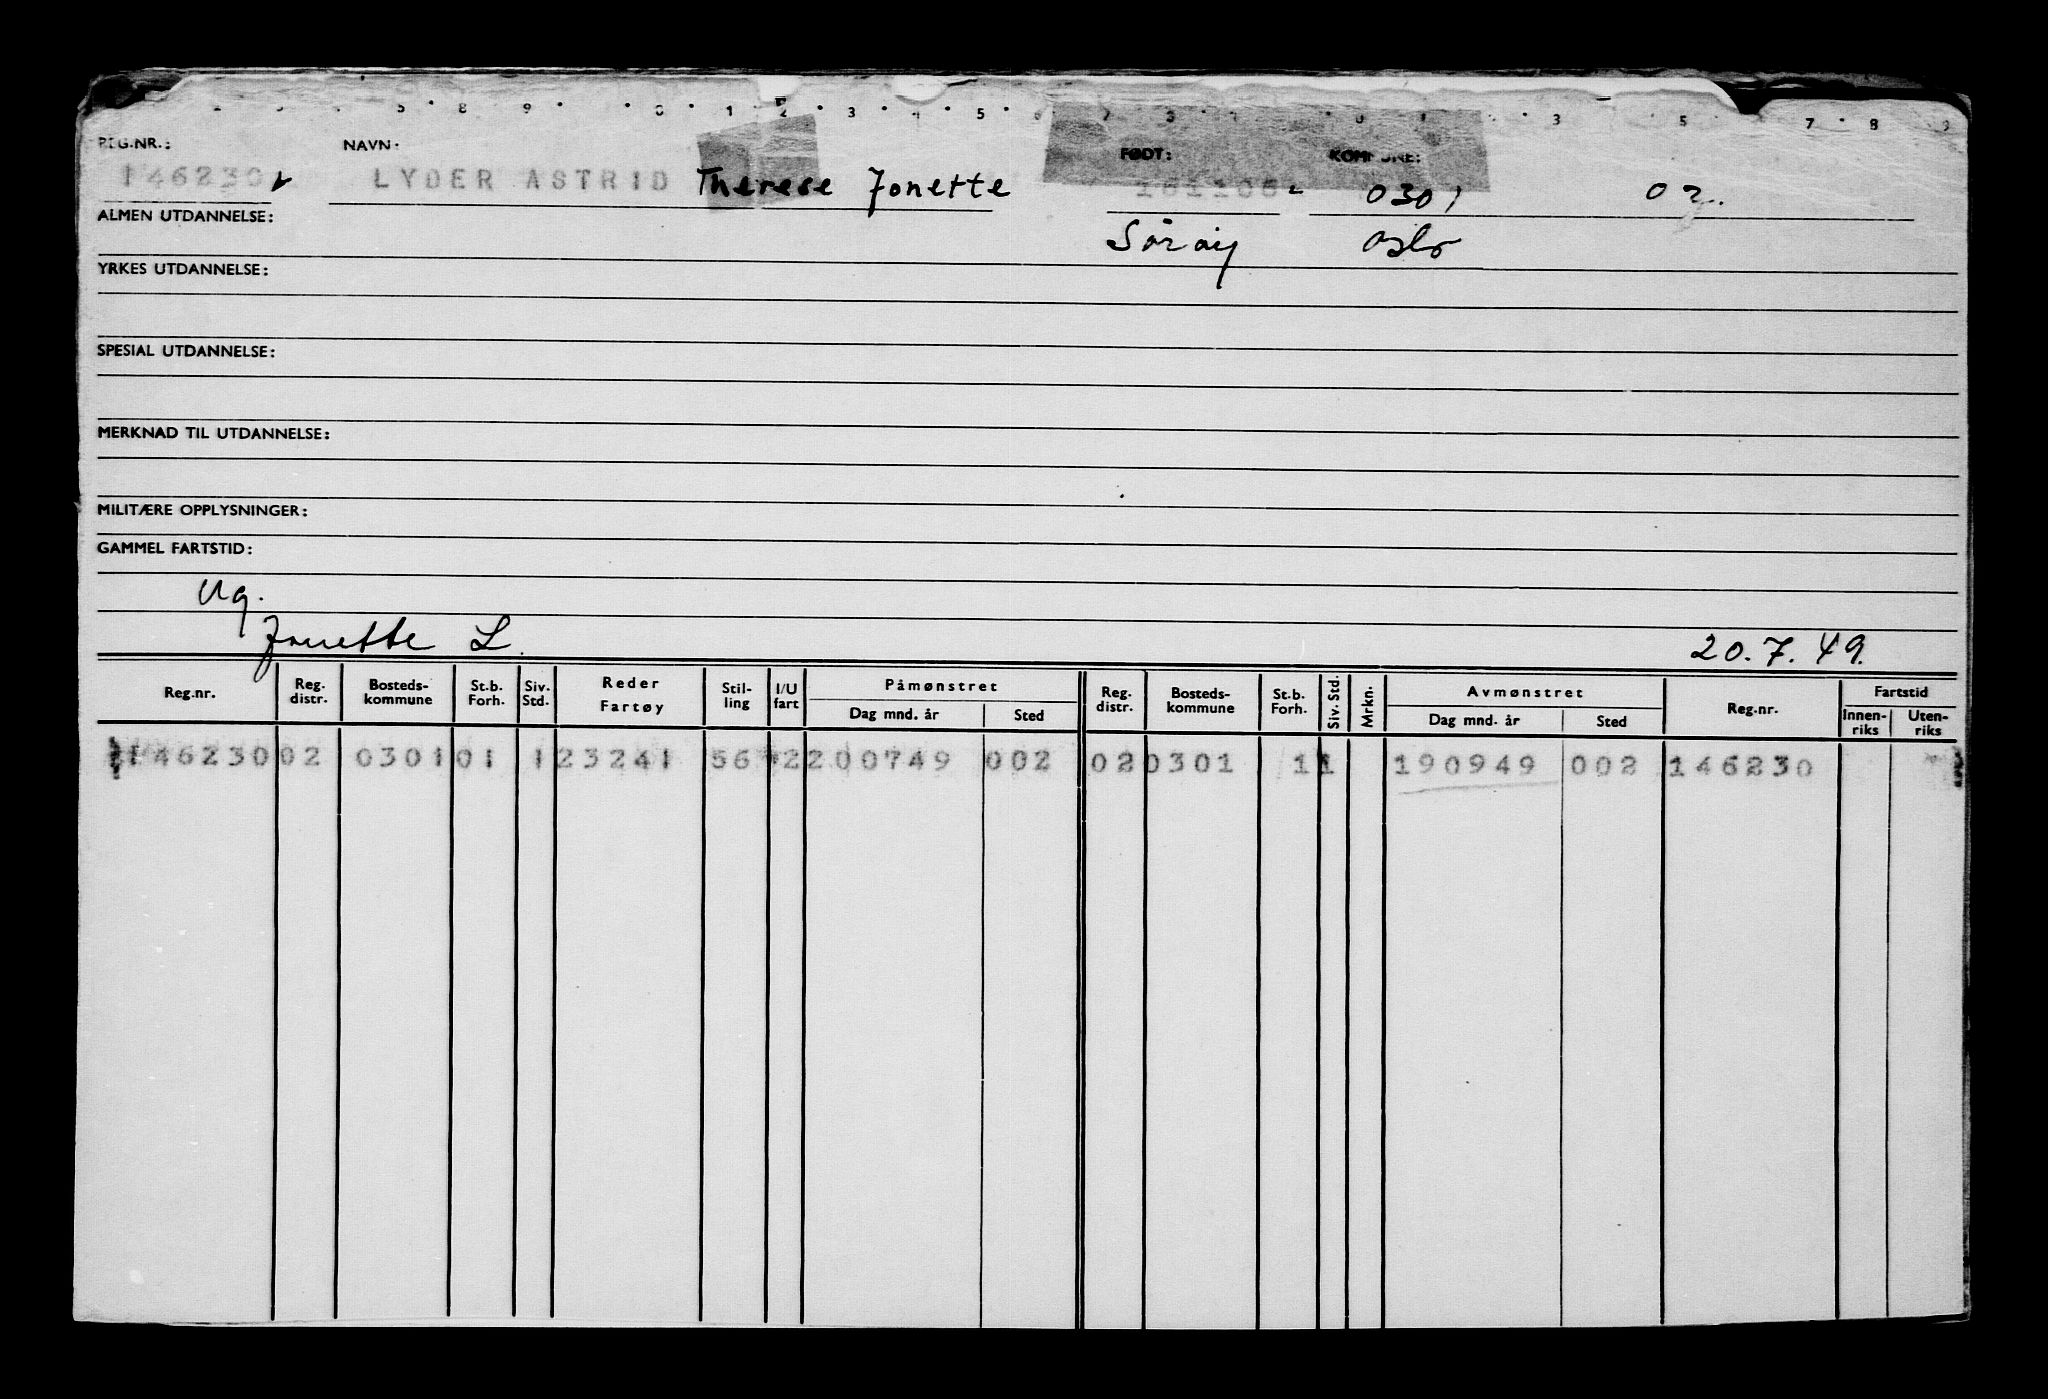 REG.NR.: NAVN: FØDT: KOMMUNE:
146230 LYDER ASTRID Therese Jonette 161106 0301 02.
ALMEN UTDANNELSE: Sørøy Oslo
YRKES UTDANNELSE:
SPESIAL UTDANNELSE:
MERKNAD TIL UTDANNELSE:
MILITÆRE OPPLYSNINGER:
GAMMEL FARTSTID:
Ug.
Jonette L. 20.7.49.
Reg.nr. Reg. distr. Bosteds-kommune St.b. Forh. Siv. Std. Reder Fartøy Stil-ling I/U fart Påmønstret Dag mnd. år Sted Reg. distr. Bosteds-kommune St.b. Forh. Siv. Std. Mrkn. Avmønstret Dag mnd. år Sted Reg.nr. Fartstid Innen-riks Uten-riks
146230 02 0301 01 1 23241 56 2 200749 002 02 0301 1 1 190949 002 146230